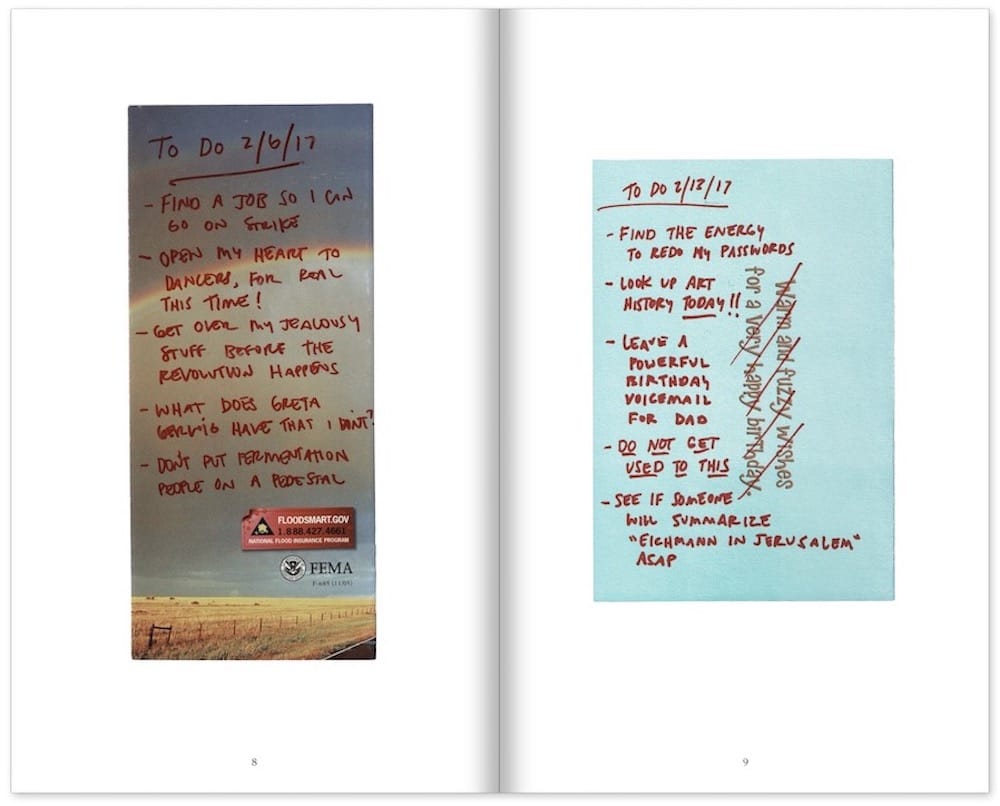 TO DO 2/6/17
- FIND A JOB SO I CAN
GO ON STRIKE
- OPEN MY HEART TO
DANCERS, FOR REAL
THIS TIME!
- GET OVER MY JEALOUSY
STUFF BEFORE THE
REVOLUTION HAPPENS
- WHAT DOES GRETA
GERWIG HAVE THAT I DON'T?
- DON'T PUT FERMENTATION
PEOPLE ON A PEDESTAL
FLOODSMART.GOV
1.888.427.4661
NATIONAL FLOOD INSURANCE PROGRAM
FEMA
8
TO DO 2/13/17
- FIND THE ENERGY
TO REDO MY PASSWORDS
- LOOK UP ART
HISTORY TODAY!!
- LEAVE A
POWERFUL
BIRTHDAY
VOICEMAIL
FOR DAD
- DO NOT GET
USED TO THIS
- SEE IF SOMEONE
WILL SUMMARIZE
"EICHMANN IN JERUSALEM"
ASAP
Warm and fuzzy wishes
for a very happy birthday.
9